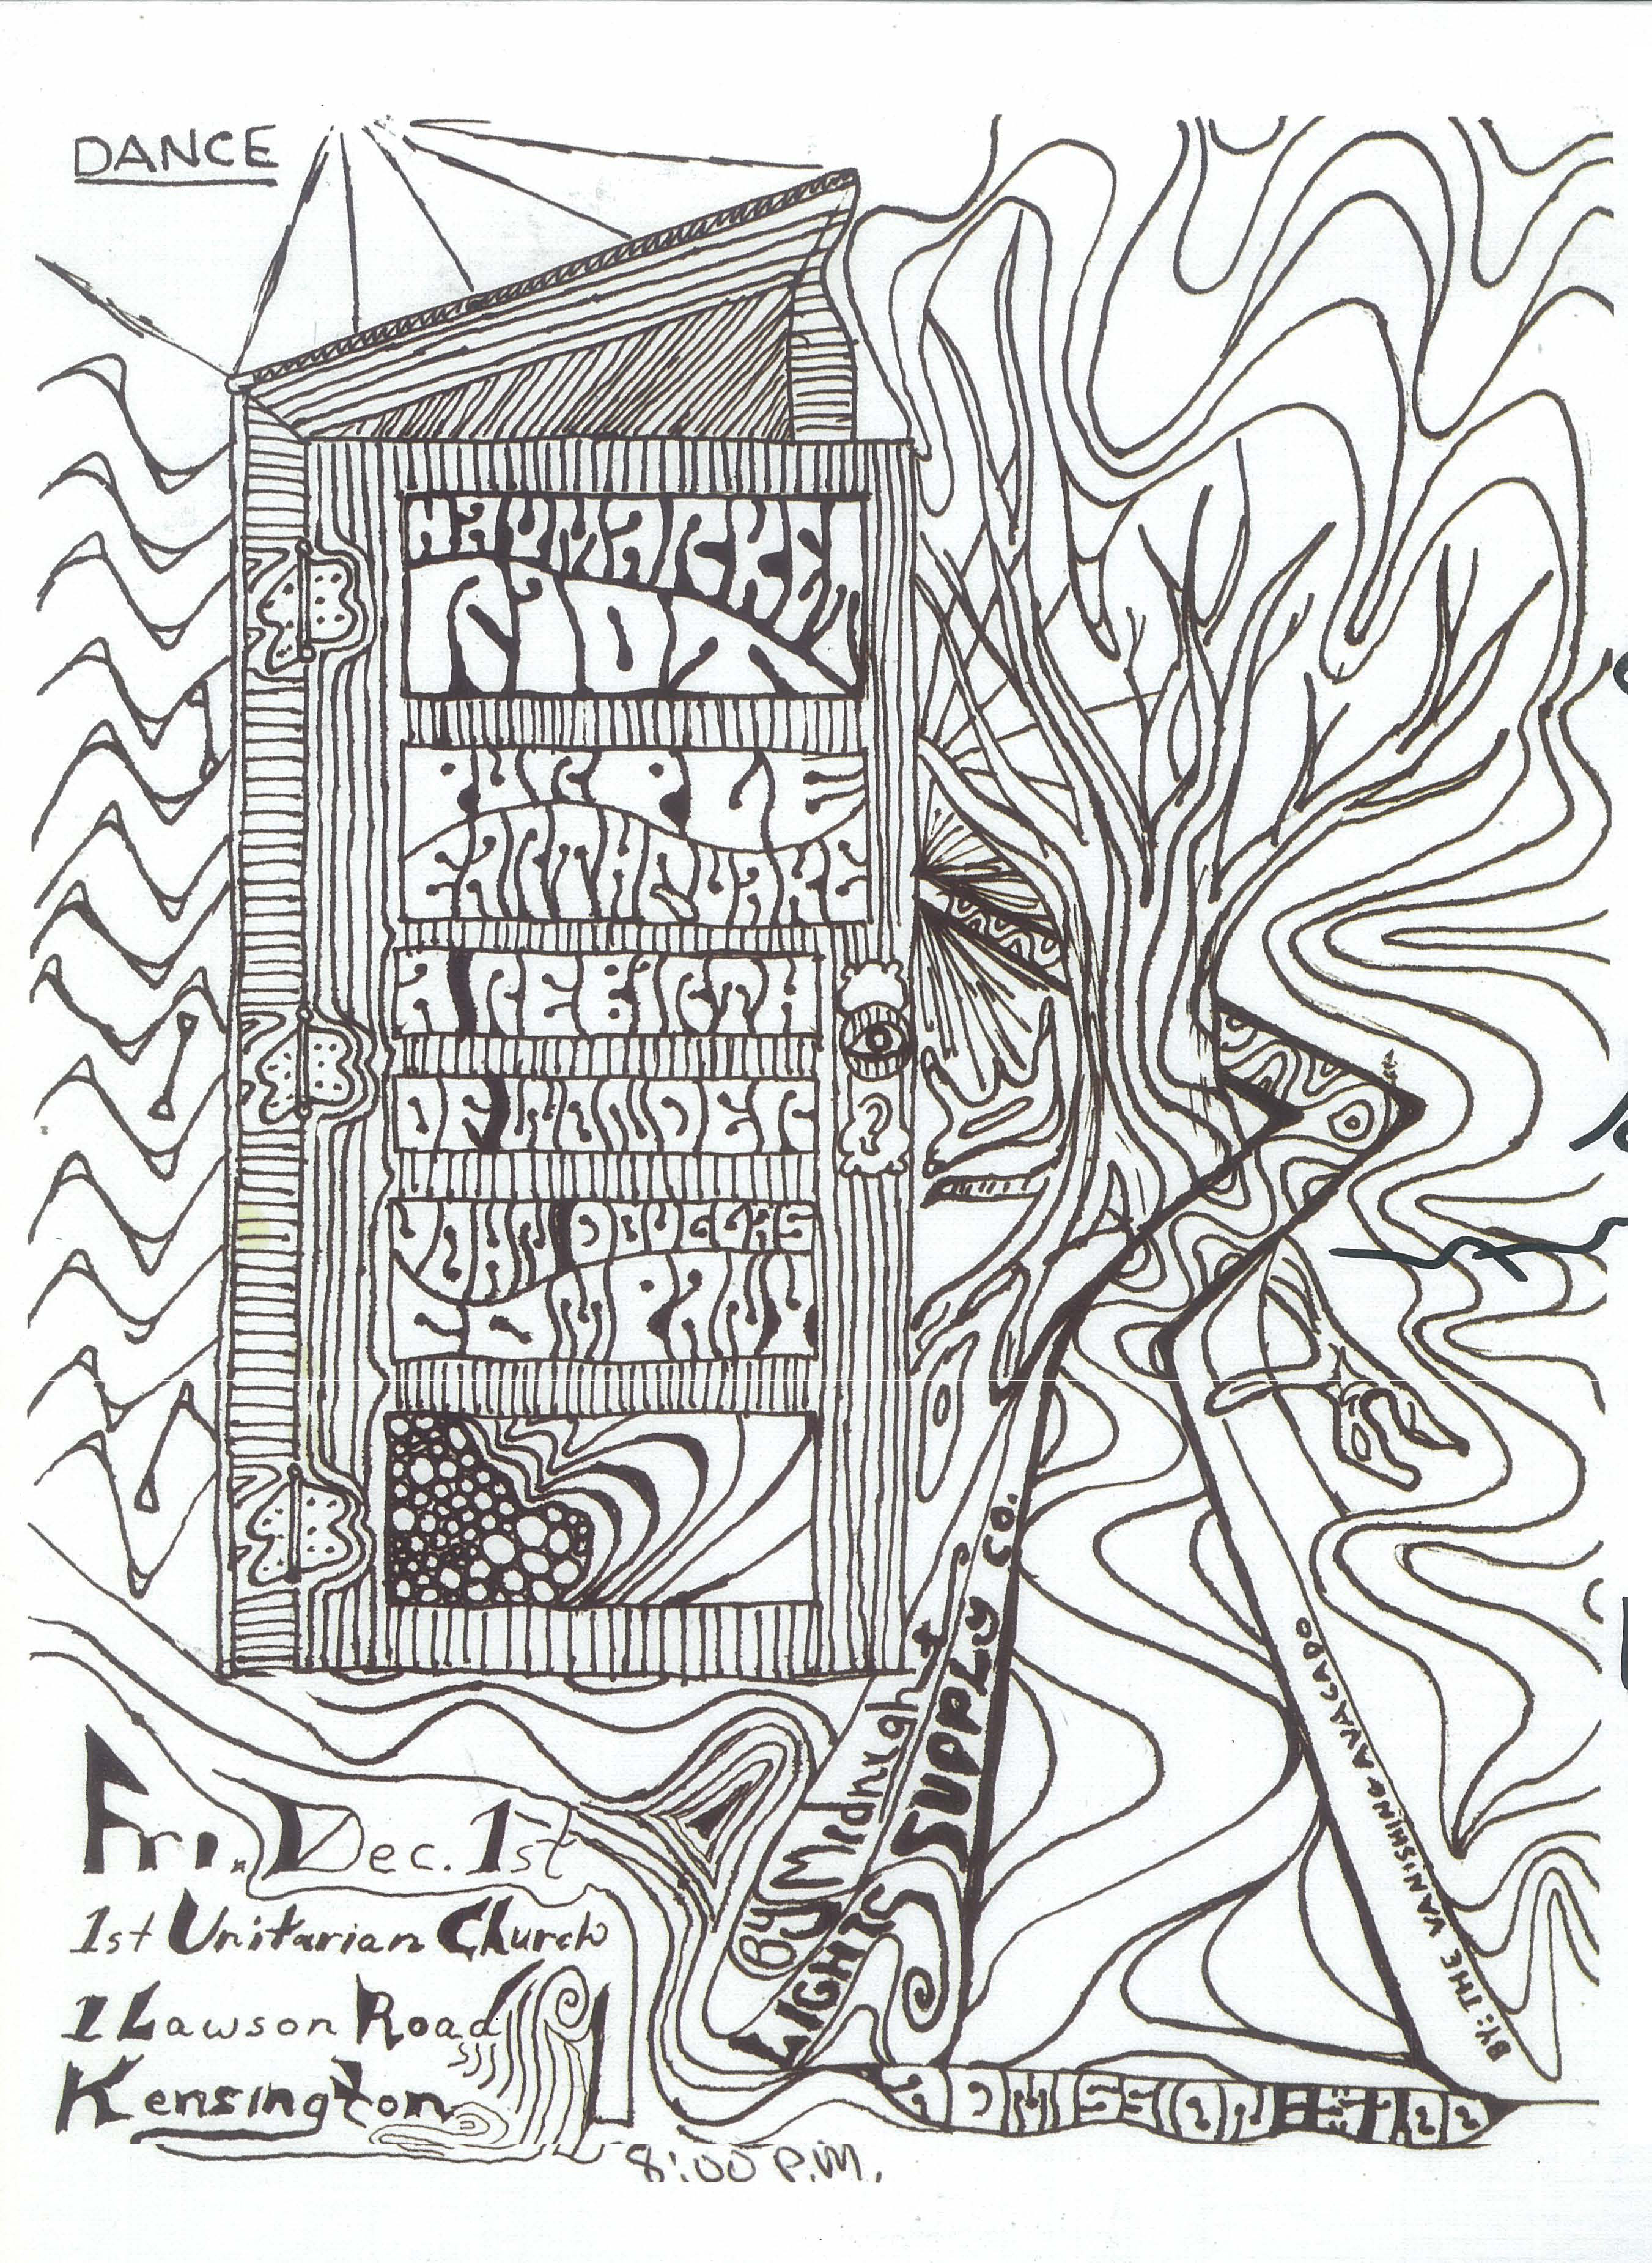 DANCE
HAYMARKET
RIOT
PURPLE
EARTHQUAKE
A REBIRTH
OF WONDER
JOHN DOUGLAS
COMPANY
By Midnight
LIGHTS SUPPLY CO.
BY: THE VANISHING AVACADO
Fri. Dec. 1st
1st Unitarian Church
1 Lawson Road
Kensington
ADMISSION
8:00 P.M.